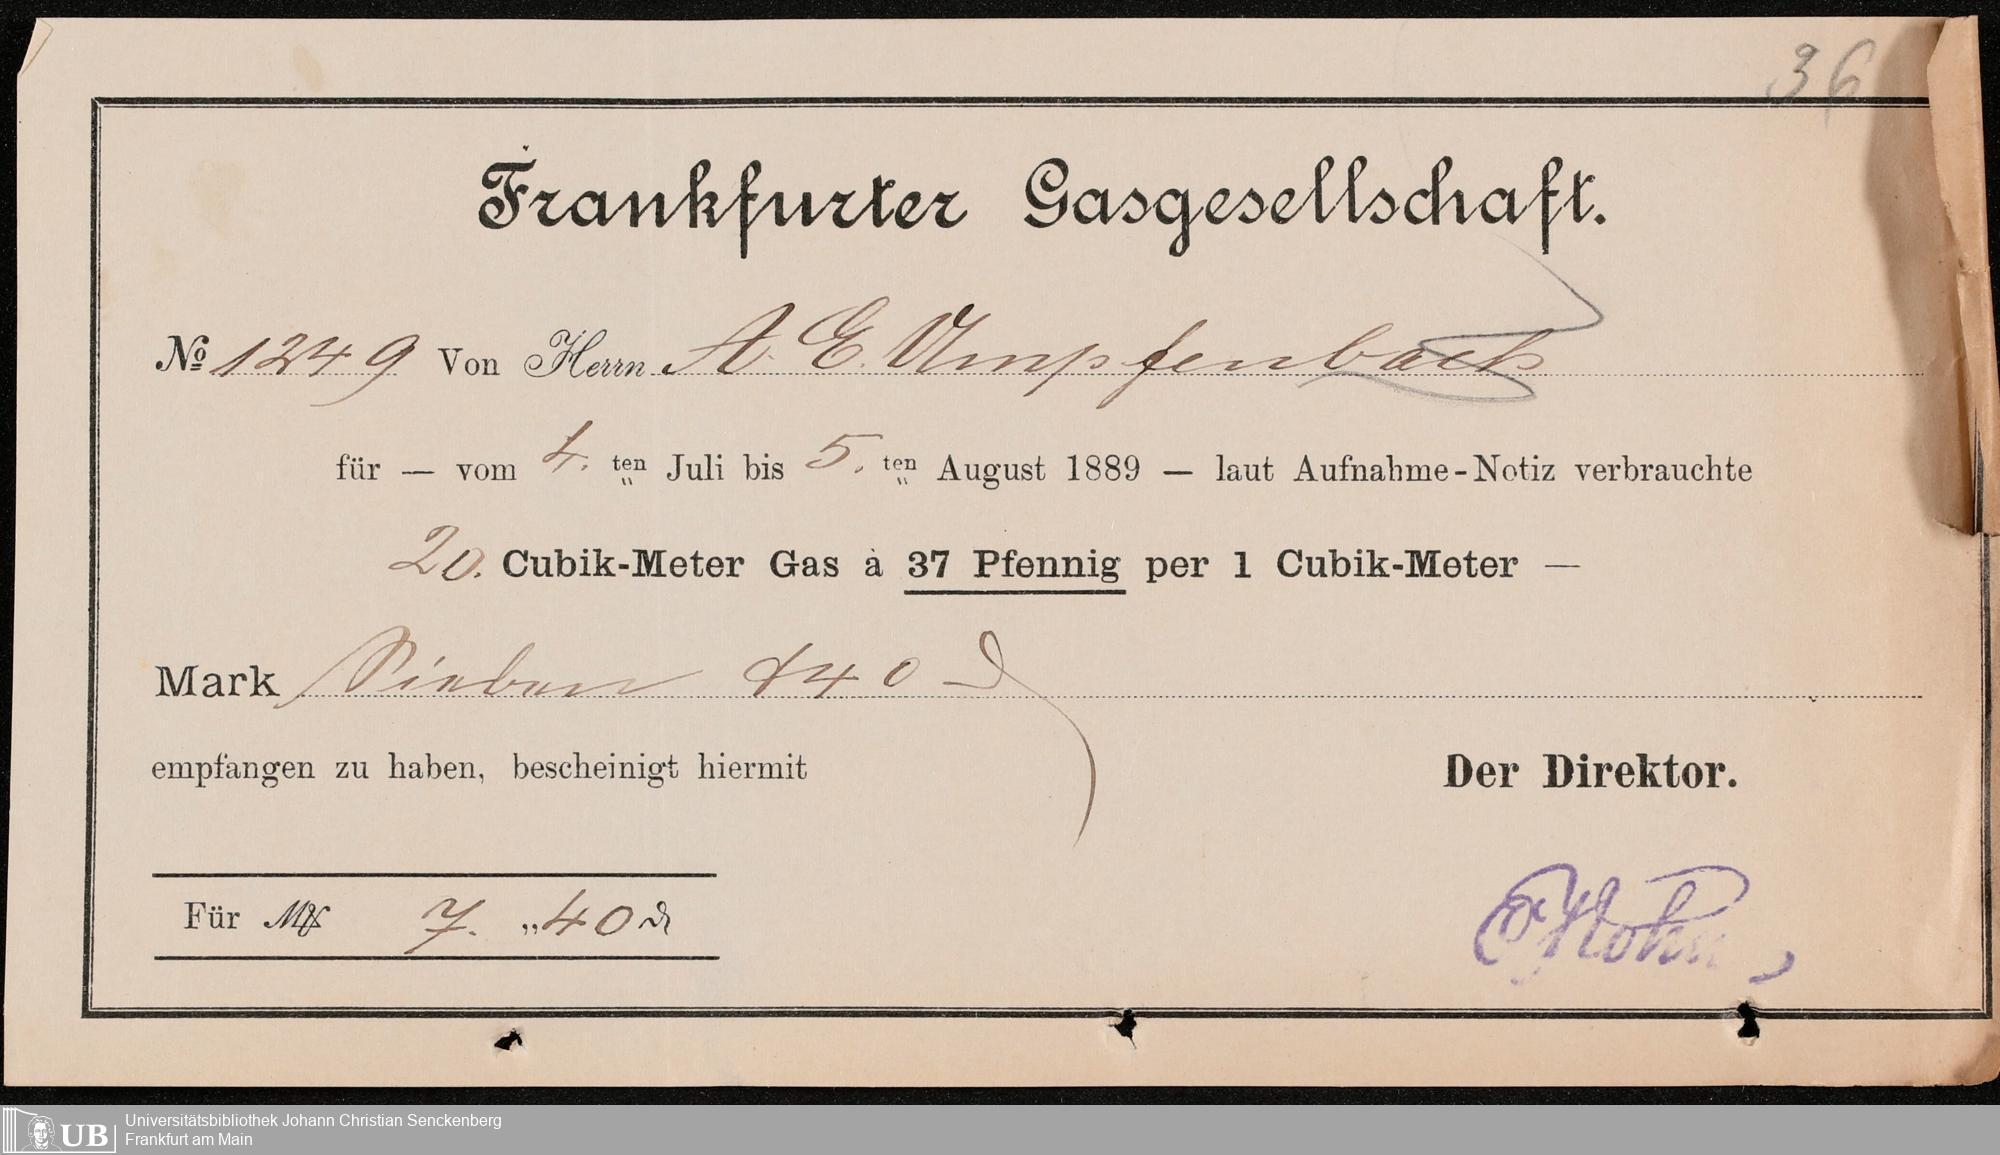 36
Frankfurter Gasgesellschaft.
No 1249 Von Herrn A. E. Umpfenbach
für — vom 4. ten Juli bis 5. ten August 1889 — laut Aufnahme-Notiz verbrauchte
20. Cubik-Meter Gas à 37 Pfennig per 1 Cubik-Meter —
Mark Sieben & 40 ₰
empfangen zu haben, bescheinigt hiermit
Der Direktor.
Für ℳ 7. „ 40 ₰
Universitätsbibliothek Johann Christian Senckenberg
UB Frankfurt am Main